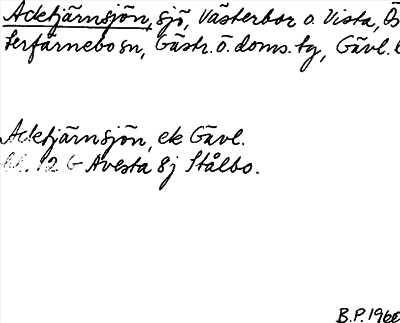 Acktjärnsjön, sjö, Västerbor o. Vista, Ös
terfärnebo sn, Gästr. ö. doms. tg, Gävl. l
Acktjärnsjön, ek Gävl.
bl. 12 G Avesta 8j Stålbo.
B.P. 1968